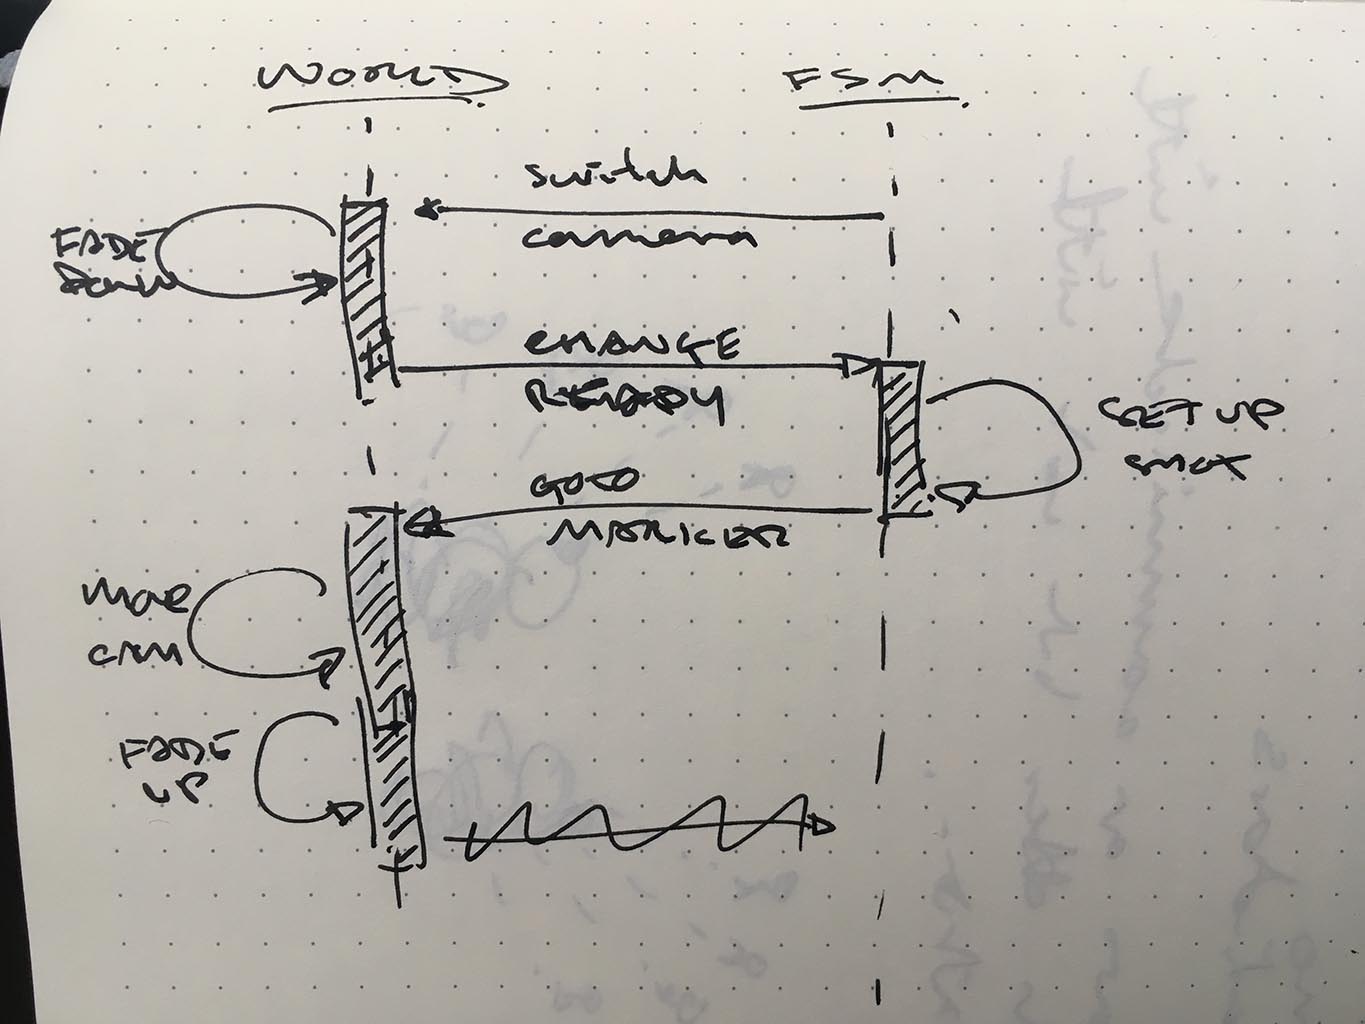 WORLD
FSM
switch
camera
FADE
Down
CHANGE
READY
SET UP
SHOT
GOTO
MARKER
MOVE
CAM
FADE
UP